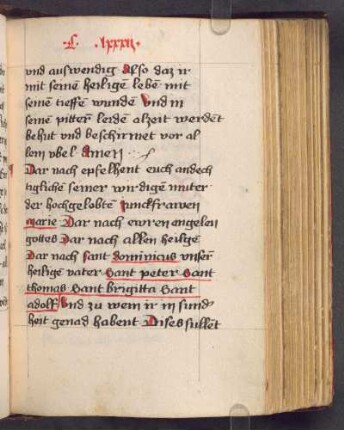 C. lxxxij
vnd auswendig Also daz ir
mit seinē heiligē lebē mit
seinē tieffē wundē Vnd in
seinē pitterē leidē alzeit werdēt
behut vnd beschirmet vor al
lem vbel Amen
Dar nach epfelhent euch andech
tiglichē seiner wirdigē muter
der hochgelobtē junckfrawen
marie Dar nach ewren engelen
gottes Dar nach allen heiligē
Dar nach sant dominicus vnserē
heilige vater Sant peter Sant
thomas Sant brigitta Sant
adolf Vnd zu wem ir in sund
heit genad habent Dises sullēt